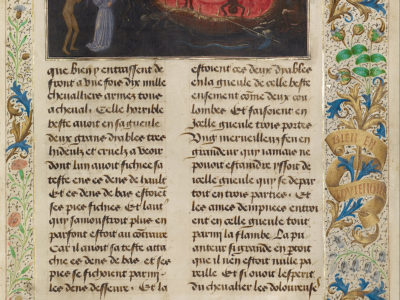 que bien y entraissent de
front a une fois dix mille
chevalliers armez tous
a cheval. Celle horrible
beste avoit en sa gueule
deux grans dyables tres
hideux et cruelz a veoir
dont lun avoit fichee sa
teste es dens de hault
Et es dens de bas estoient
ses piez fichiez Et laut
qui samoustroit plus en
parfont estoit au contraire
Car il avoit sa teste atta
chie es dens de bas et ses
piez se fichoient parmy
les dens desseure. Et la
estoient ces deux dyables
en la gueule de celle beste
ensement come deux cou
lombes Et faisoient en
icelle gueule trois portes
Ung merveilleux feu en
grandeur qui jamais ne
pouoit estaindre yssoit de
icelle gueule qui se depar
toit en trois parties. Et
les ames dempnees entroi
ent en celle gueule tout
parmy la flambe. La pu
anteur si grande en yssoit
que il nen estoit nulle pa
reille Et si ouoit lesperit
du chevalier les doloureuse
BIEN EN
AVIENGNE